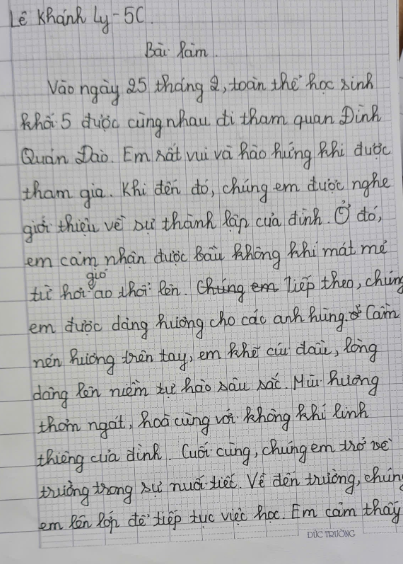 Lê Khánh Ly - 5C.
Bài làm.
Vào ngày 25 tháng 2, toàn thể học sinh
khối 5 được cùng nhau đi tham quan Đình
Quán Dào. Em rất vui và hào hứng khi được
tham gia. Khi đến đó, chúng em được nghe
giới thiệu về sự thành lập của đình. Ở đó,
em cảm nhận được bầu không khí mát mẻ
gió
từ hơi ao thổi lên. Chúng em Tiếp theo, chúng
em được dâng hương cho các anh hùng. Cầm
nén hương trên tay, em khẽ cúi đầu, lòng
dâng lên niềm tự hào sâu sắc. Mùi hương
thơm ngát, hoà cùng với không khí linh
thiêng của đình. Cuối cùng, chúng em trở về
trường trong sự nuối tiếc. Về đến trường, chúng
em lên lớp để tiếp tục việc học. Em cảm thấy
ĐỨC TRƯỜNG